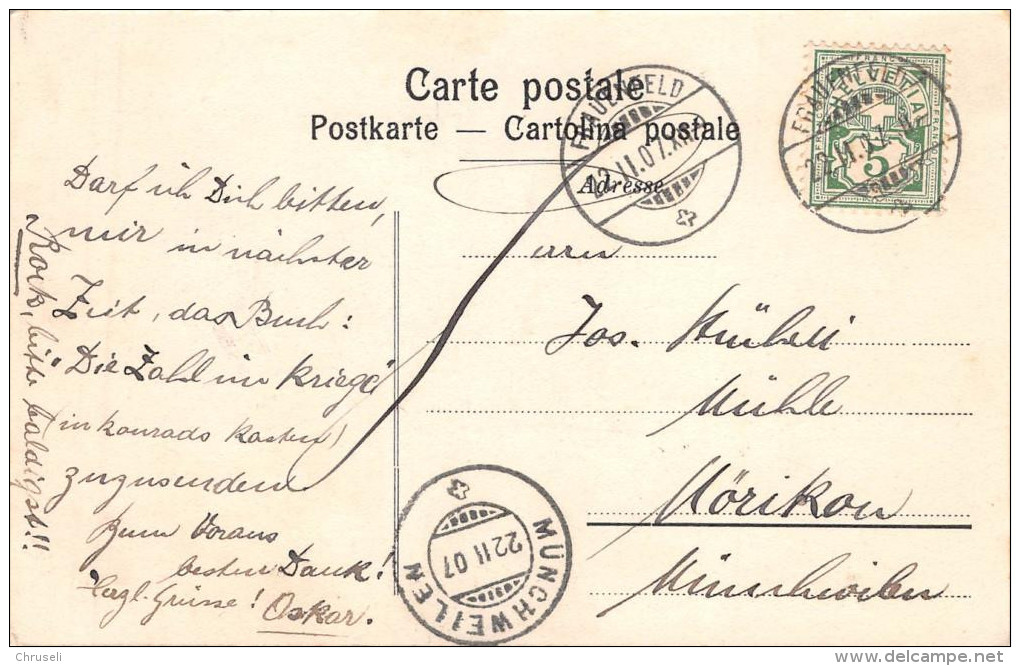 Carte postale
Postkarte — Cartolina postale
Adresse
FRAUENFELD
22.11.07.XII
FRAUENFELD
22.11.07
5
Darf ich Dich bitten,
mir in nächster
Zeit, das Buch:
"Die Zahl im Kriege"
(in Konrads Kasten)
zuzusenden
Zum Voraus
besten Dank!
Grüsse! Oskar.
bitte baldigst!!
Herrn
Jos.
Mühle
Mörikon
Münchwilen
MÜNCHWEILEN
22 11 07
© Chruseli
www.delcampe.net